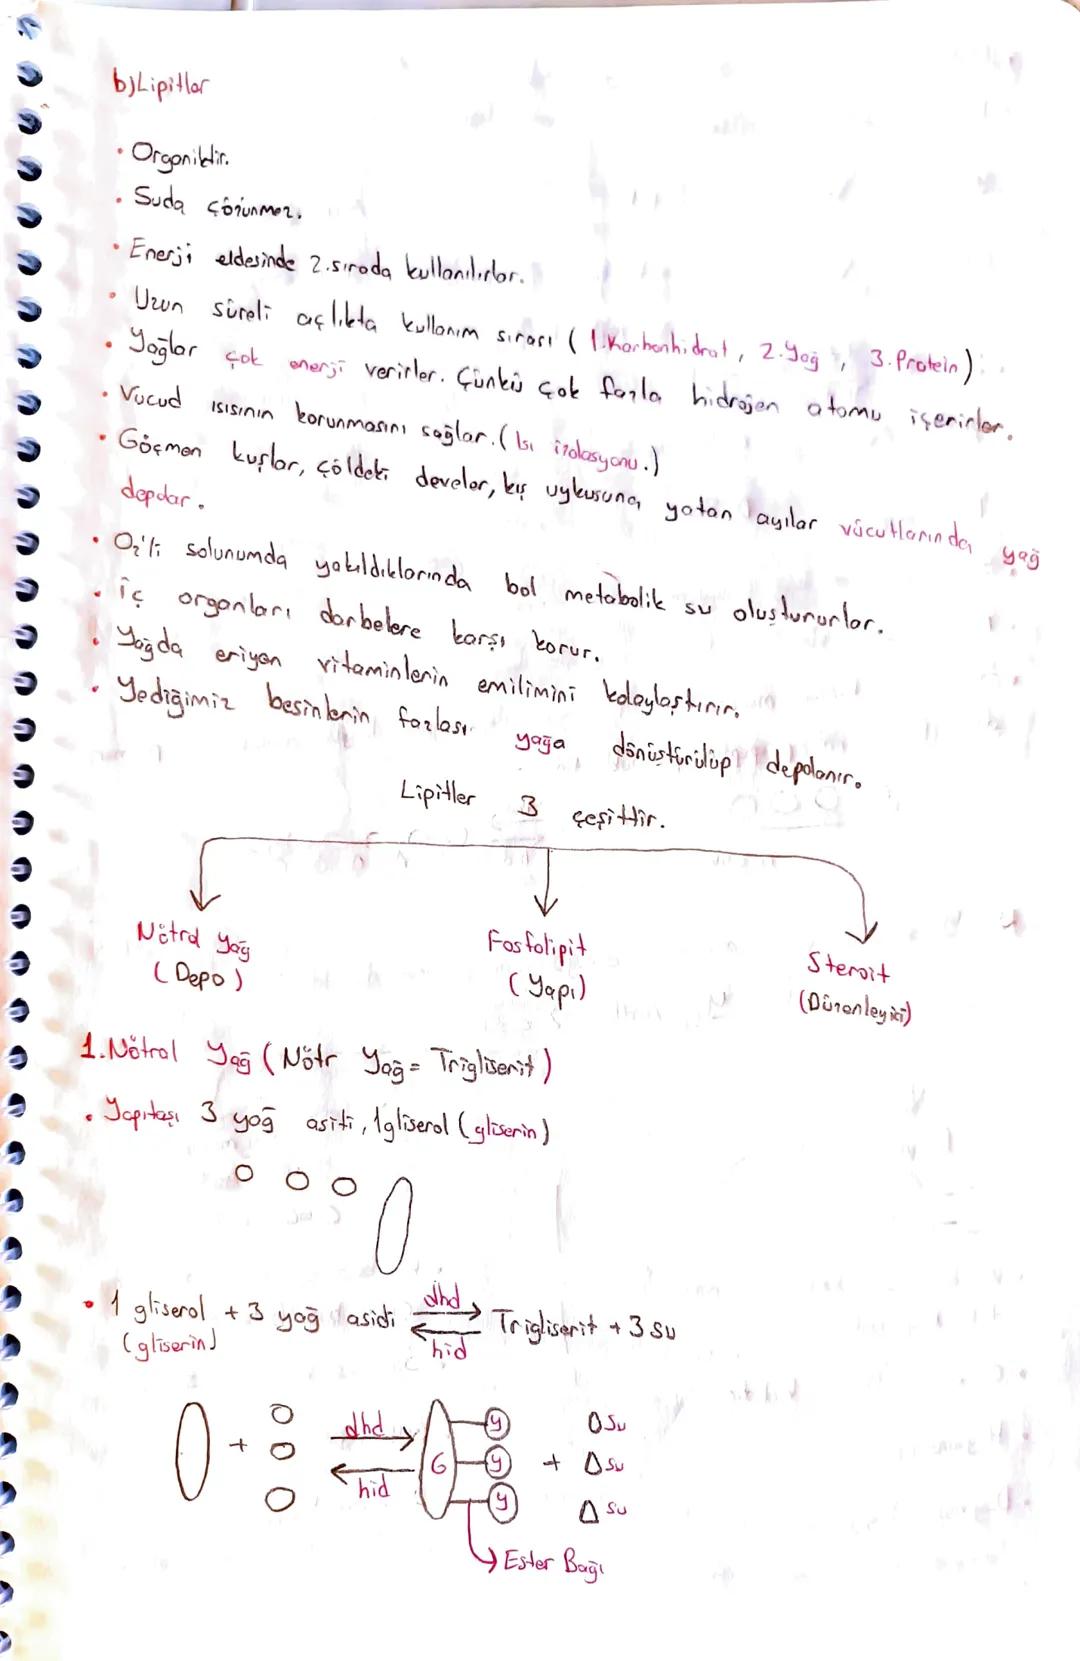 b) Lipitler
• Organiktir.
• Suda çözünmez.
• Enerji eldesinde 2. sırada kullanılırlar.
• Uzun süreli açlıkta kullanım sırası (1. Karbonhidrat, 2. Yağ, 3. Protein)
• Yağlar çok enerji verirler. Çünkü çok fazla hidrojen atomu içerirler.
• Vücud ısısının korunmasını sağlar. (Isı izolasyonu.)
• Göçmen kuşlar, çöldeki develer, kış uykusuna yatan ayılar vücutlarında yağ
depolar.
• O₂'li solunumda yakıldıklarında bol metabolik su oluştururlar.
• İç organları darbelere karşı korur.
• Yağda eriyen vitaminlerin emilimini kolaylaştırır.
• Yediğimiz besinlerin fazlası yağa dönüştürülüp depolanır.
Lipitler 3 çeşittir.
Nötral Yağ Fosfolipit Steroit
(Depo) (Yapı) (Düzenleyici)
1. Nötral Yağ (Nötr Yağ = Trigliserit)
• Yapıtaşı 3 yağ asiti, 1 gliserol (gliserin)
• 1 gliserol + 3 yağ asidi dhd Trigliserit + 3 su
(gliserin) hid
+ dhd G y y y + su
hid su
su
Ester Bağı